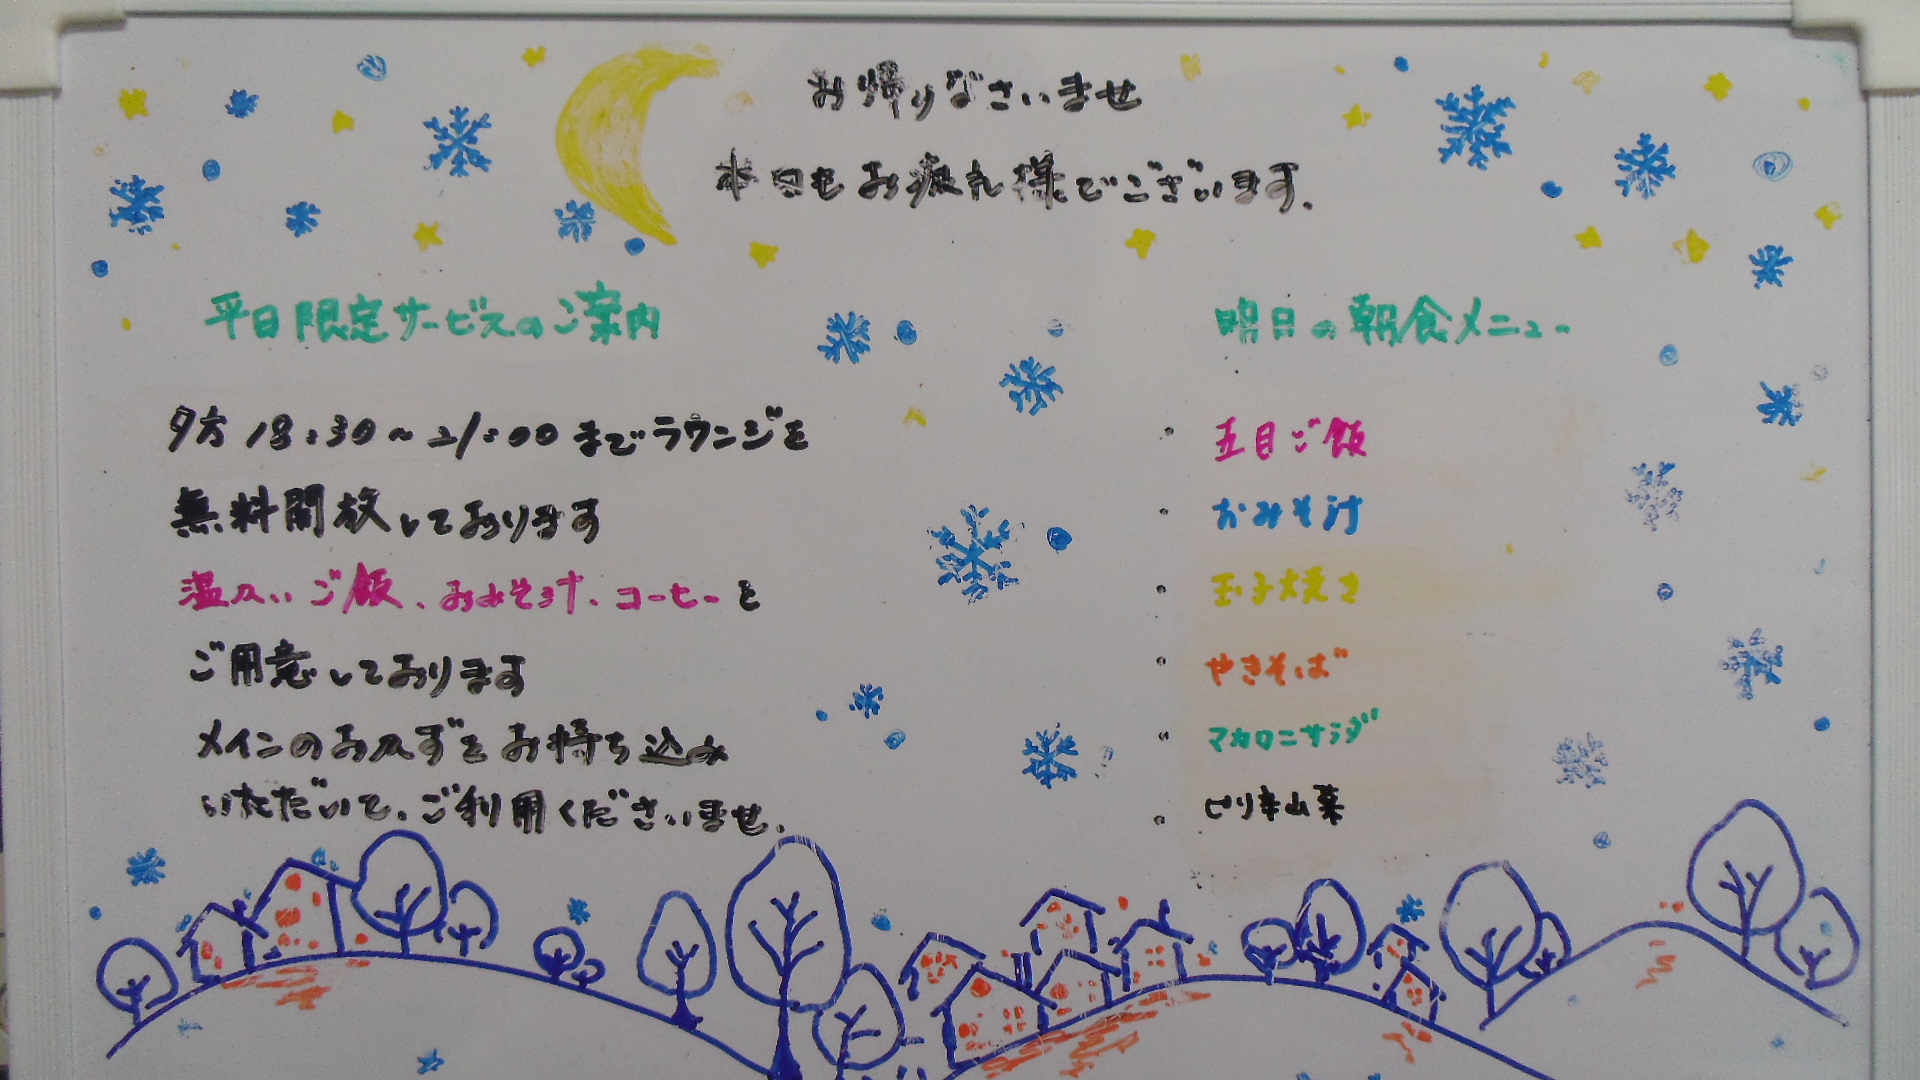 お帰りなさいませ
本日もお疲れ様でございます.
平日限定サービスのご案内
夕方18:30~21:00までラウンジを
無料開放しております
温かいご飯、おみそ汁、コーヒーを
ご用意しております
メインのおかずをお持ち込み
いただいて、ご利用くださいませ.
明日の朝食メニュー
・五目ご飯
・おみそ汁
・玉子焼き
・やきそば
・マカロニサラダ
・ピリ辛山菜